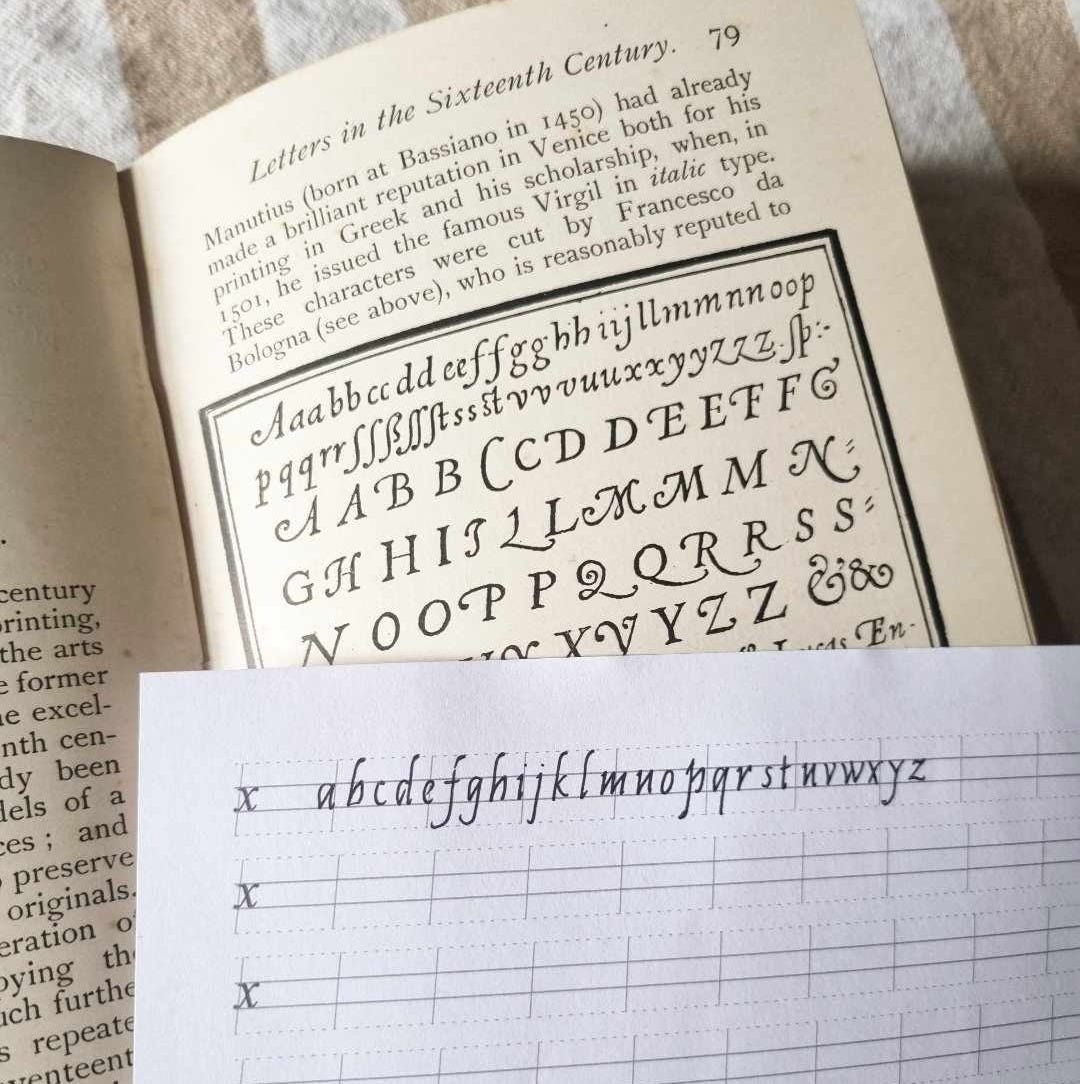 Letters in the Sixteenth Century. 79
Manutius (born at Bassiano in 1450) had already
made a brilliant reputation in Venice both for his
printing in Greek and his scholarship, when, in
1501, he issued the famous Virgil in italic type.
These characters were cut by Francesco da
Bologna (see above), who is reasonably reputed to
Aaabbccddeeffgghhiijllmmnnoop
pqqrrſſſßſſſtssstvvvuuuxxyyzzzz.ſþ:-
A A B B C C D D E E F F G
G H H I J L L M M M N:
N O O P P Q Q R R S S
X V Y Z Z & &
En-
century
printing,
the arts
former
excel-
nth cen-
dy been
dels of a
ces; and
preserve
originals.
eration
the
further
s repeate
venteent
x abcdefghijklmnopqrstuvwxyz
x
x